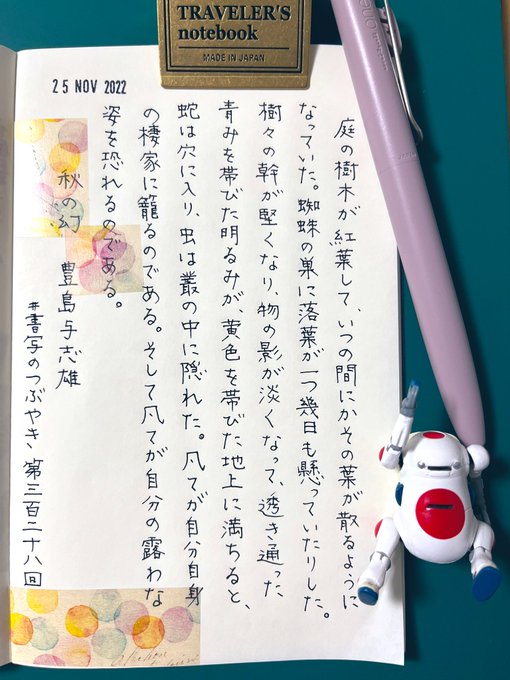 TRAVELER'S
notebook
MADE IN JAPAN
25 NOV 2022
庭の樹木が紅葉して、いつの間にかその葉が散るように
なっていた。蜘蛛の巣に落葉が一つ幾日も懸っていたりした。
樹々の幹が堅くなり、物の影が淡くなって、透き通った
青みを帯びた明るみが、黄色を帯びた地上に満ちると、
蛇は穴に入り、虫は叢の中に隠れた。凡てが自分自身
の棲家に籠るのである。そして凡てが自分の露わな
姿を恐れるのである。
秋の幻
豊島与志雄
#書写のつぶやき 第三百二十八回